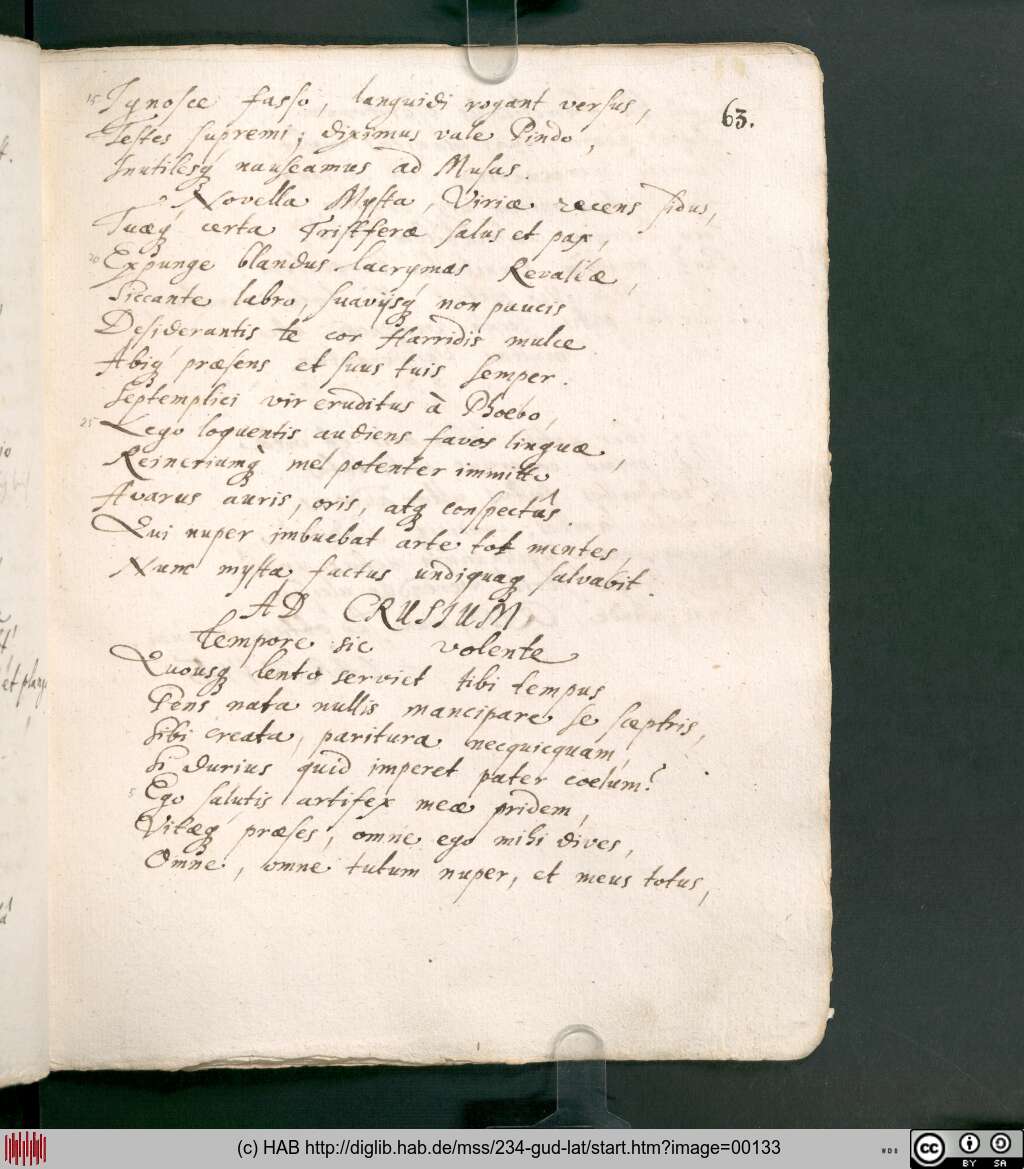 63.
15 Ignosce fasso, languidi rogant versus,
Testes supremi; diximus vale Pindo,
Inutilesq́ nauseamus ad Musas.
Novella Mysta, Viriæ recens sidus,
Tuæq́ certa Trifferæ salus et pax,
20 Expunge blandus lacrymas Revaliæ,
Siccante labro, suavijsq́ non paucis
Desiderantis te cor Harridis mulce
Abiq́ præsens et suus tuis semper.
Septemplici vir eruditus à Phoebo,
25 Lego loquentis audiens favos linguæ,
Reineriumq́ mel potenter immitto
Avarus auris, oris, atq conspectûs.
Qui nuper imbuebat arte tot mentes,
Nunc mysta factus undiquaq salvabit.
AD CRUSIUM,
tempore sic volente
Quousq lento serviet tibi tempus
Pens nata nullis mancipare se sceptris,
Sibi creata, paritura necquicquam,
Si durius quid imperet pater coelum?
5 Ego salutis artifex meæ pridem,
Vitæq præses, omne ego mihi dives,
Omne, omne tutum nuper, et meus totus,
et plang
(c) HAB http://diglib.hab.de/mss/234-gud-lat/start.htm?image=00133
cc BY SA